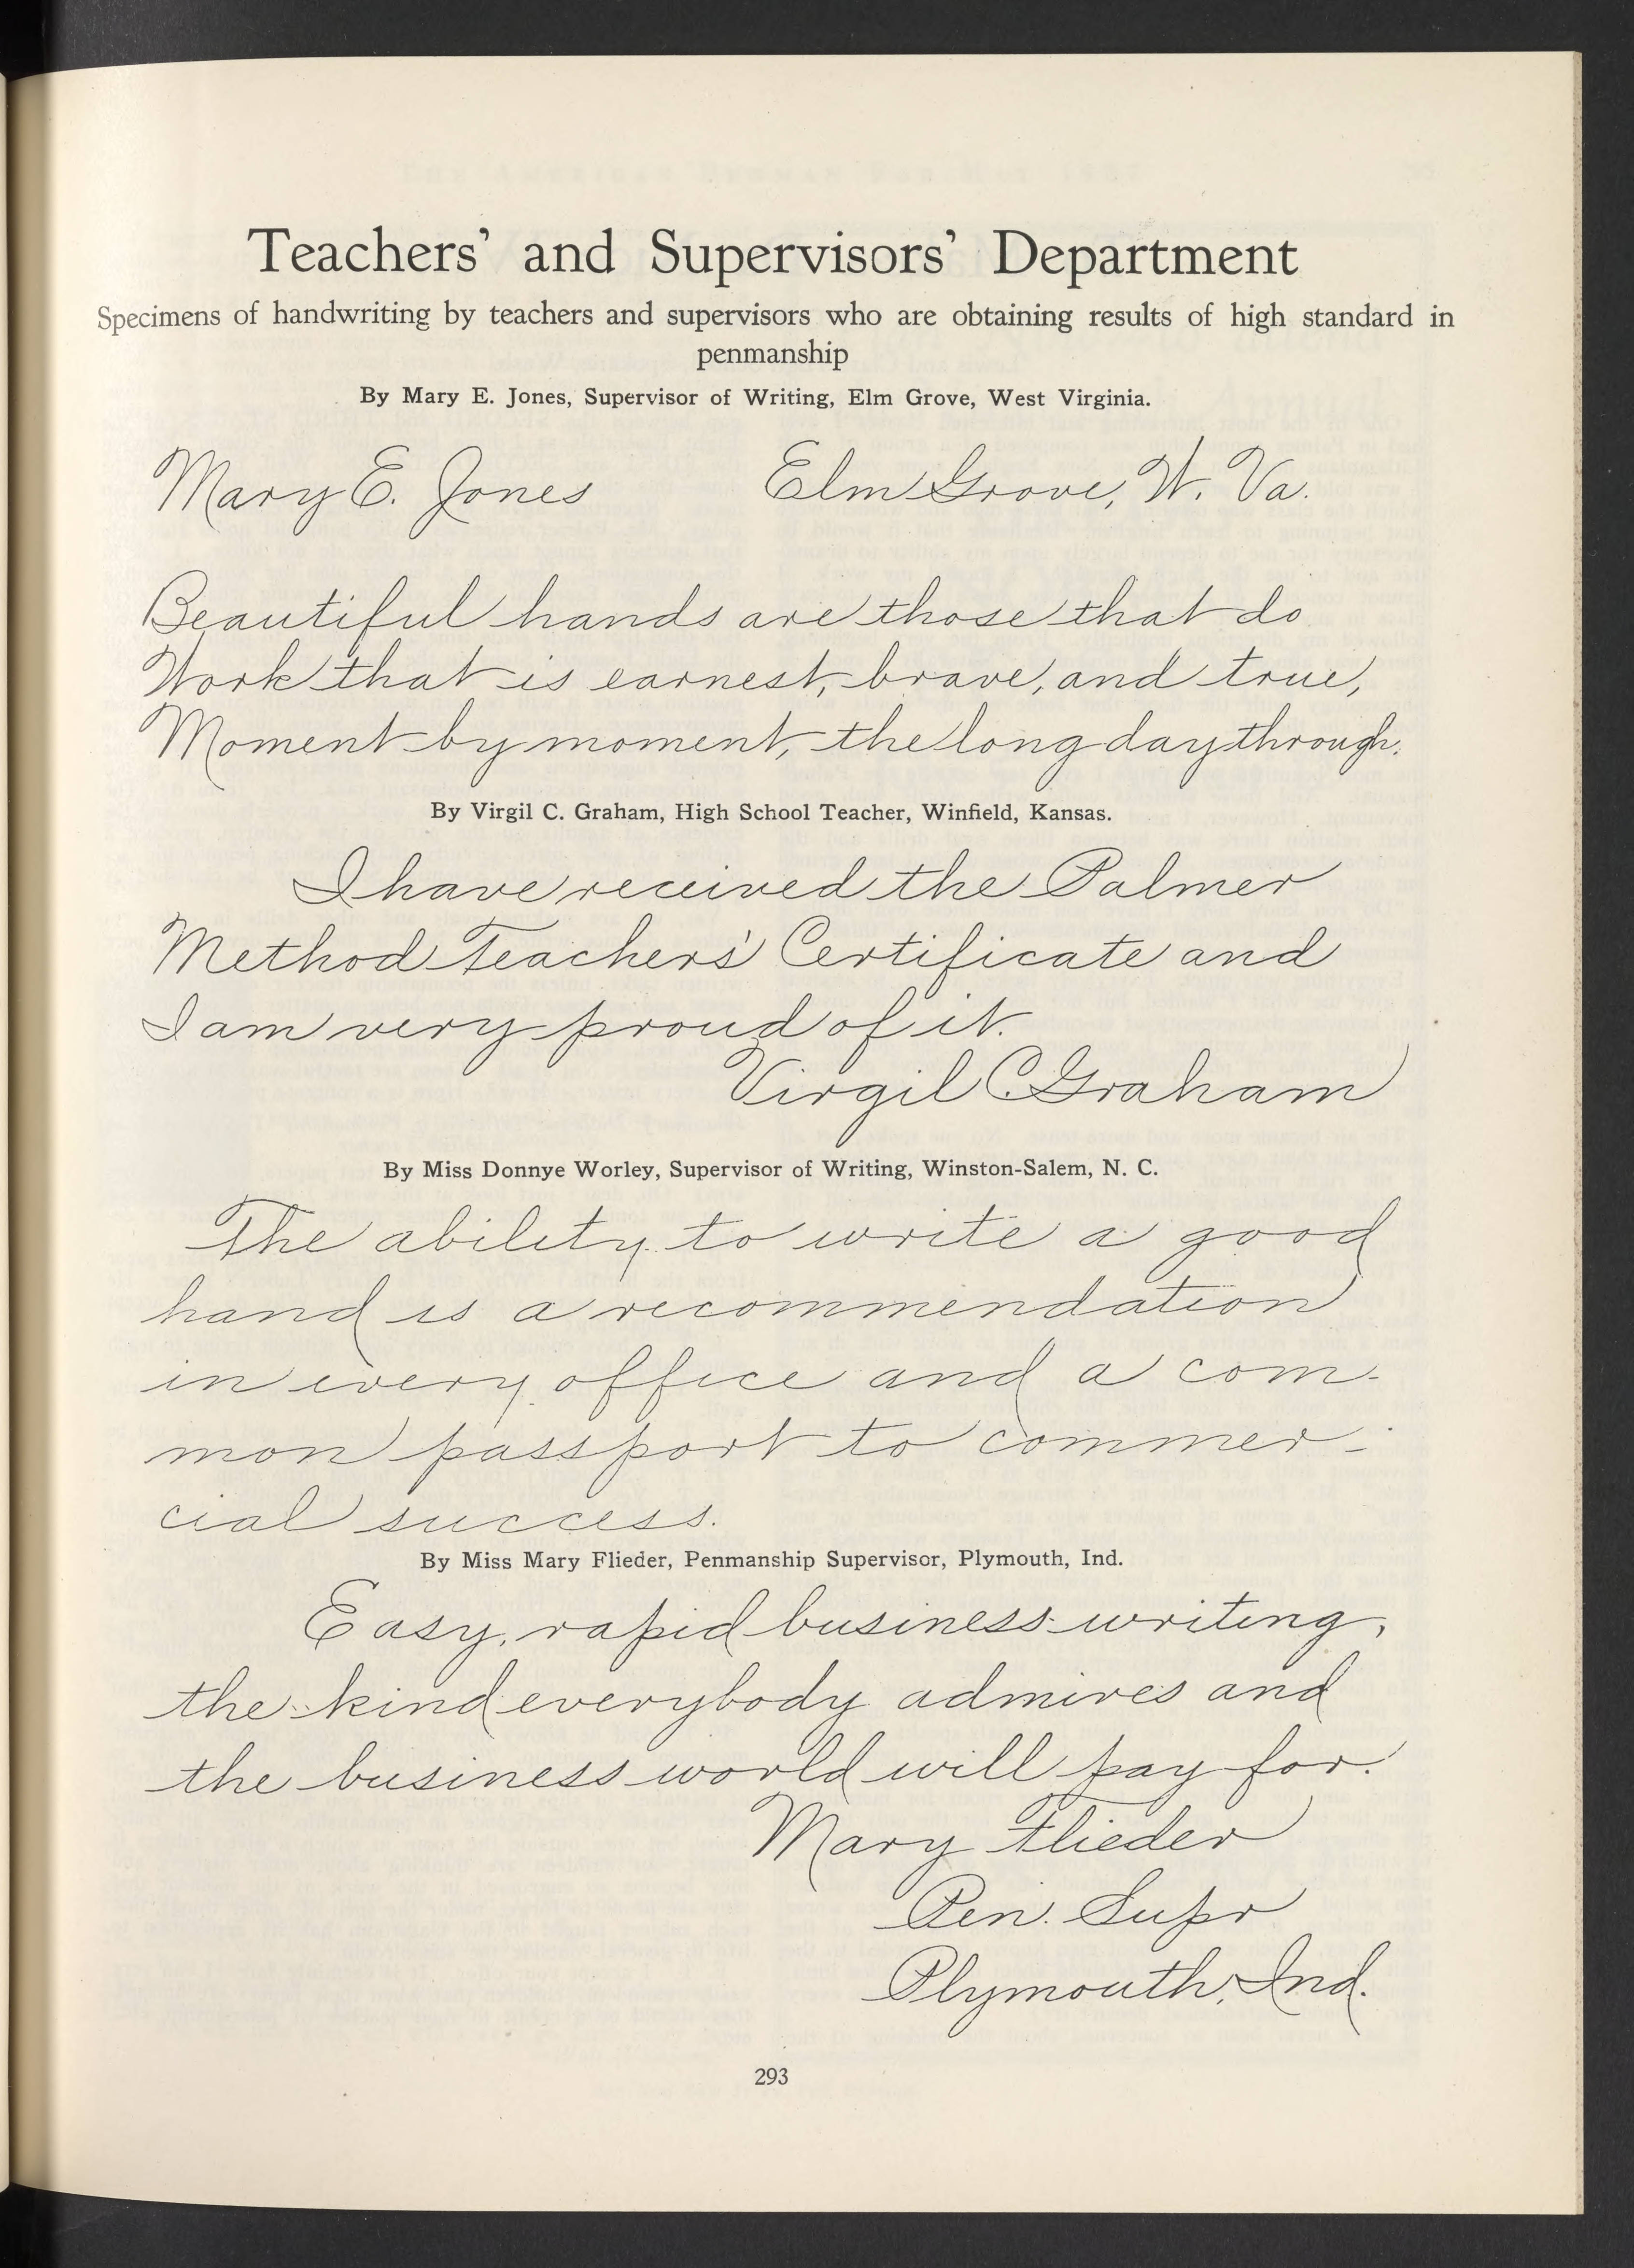 Teachers' and Supervisors' Department
Specimens of handwriting by teachers and supervisors who are obtaining results of high standard in
penmanship
By Mary E. Jones, Supervisor of Writing, Elm Grove, West Virginia.
Mary E. Jones Elm Grove, W. Va.
Beautiful hands are those that do
Work that is earnest, brave, and true,
Moment by moment, the long day through.
By Virgil C. Graham, High School Teacher, Winfield, Kansas.
I have received the Palmer
Method Teachers' Certificate and
I am very proud of it.
Virgil C. Graham
By Miss Donnye Worley, Supervisor of Writing, Winston-Salem, N. C.
The ability to write a good
hand is a recommendation
in every office and a com-
mon passport to commer-
cial success.
By Miss Mary Flieder, Penmanship Supervisor, Plymouth, Ind.
Easy, rapid business writing,
the kind everybody admires and
the business world will pay for.
Mary Flieder
Pen. Supr
Plymouth, Ind.
293